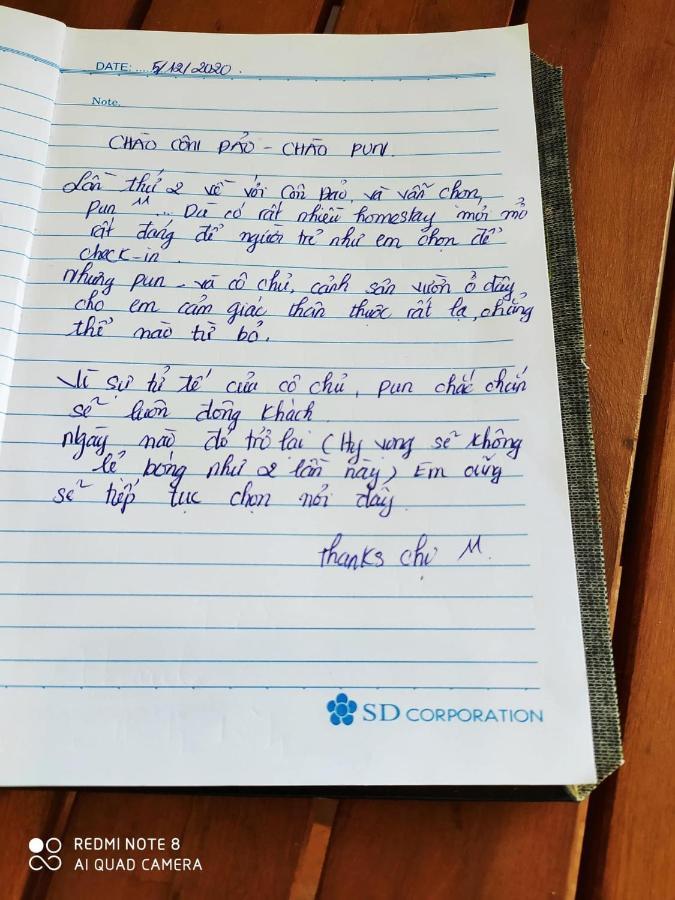 DATE: .... 5/12/2020.
Note.
CHÀO CÔN ĐẢO - CHÀO PUN.
Lần thứ 2 về với Côn Đảo, và vẫn chọn,
Pun M ... Dù có rất nhiều homestay mới mở
rất đáng để người trẻ như em chọn để
check-in.
Nhưng pun - và cô chủ, cảnh sân vườn ở đây,
cho em cảm giác thân thuộc rất lạ, chẳng
thể nào từ bỏ.
Vì sự tử tế của cô chủ, pun chắc chắn
sẽ luôn đông khách.
ngày nào đó trở lại (Hy vọng sẽ không
lẻ bóng như 2 lần này) Em cũng
sẽ tiếp tục chọn nơi đây.
thanks chị M.
SD CORPORATION
REDMI NOTE 8
AI QUAD CAMERA